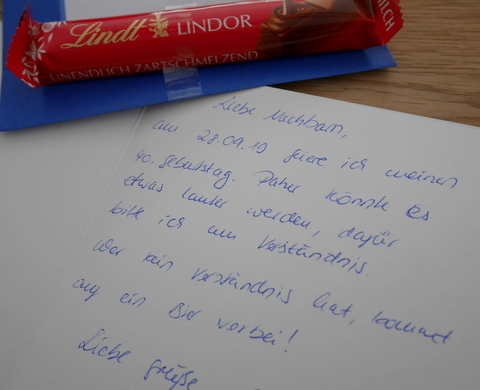 Lindt LINDOR
MILCH
UNENDLICH ZARTSCHMELZEND
Liebe Nachbarn,
am 28.09.19 feiere ich meinen
40. Geburtstag. Daher könnte es
etwas lauter werden, dafür
bitte ich um Verständnis.
Wer kein Verständnis hat, kommt
auf ein Bier vorbei!
Liebe Grüße